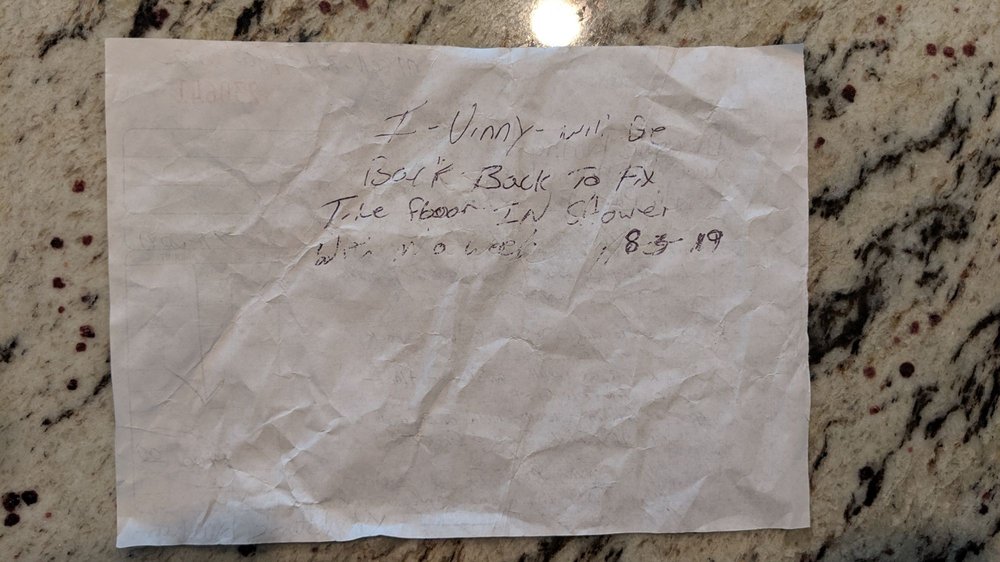 I - Vinny - will Be
Back Back To Fix
Tile floor IN Shower
Within a week 8-3-19